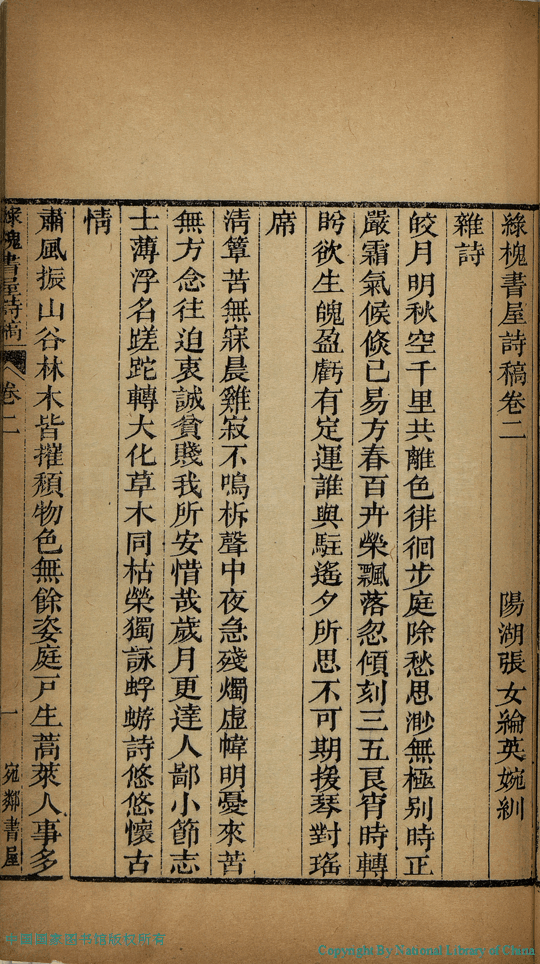 綠槐書屋詩稿卷二
陽湖張女綸英婉紃
雜詩
皎月明秋空千里共離色徘徊步庭除愁思渺無極別時正
嚴霜氣候倏已易方春百卉榮飄落忽傾刻三五良宵時轉
盻欲生魄盈虧有定運誰與駐遙夕所思不可期援琴對瑤
席
淸簟苦無寐晨雞寂不鳴柝聲中夜急殘燭虛幃明憂來苦
無方念往迫衷誠貧賤我所安惜哉歲月更達人鄙小節志
士薄浮名蹉跎轉大化草木同枯榮獨詠蜉蝣詩悠悠懷古
情
肅風振山谷林木皆摧頹物色無餘姿庭戸生蒿萊人事多
綠槐書屋詩稿 卷二 一 宛鄰書屋
中国国家图书馆版权所有
Copyright By National Library of China